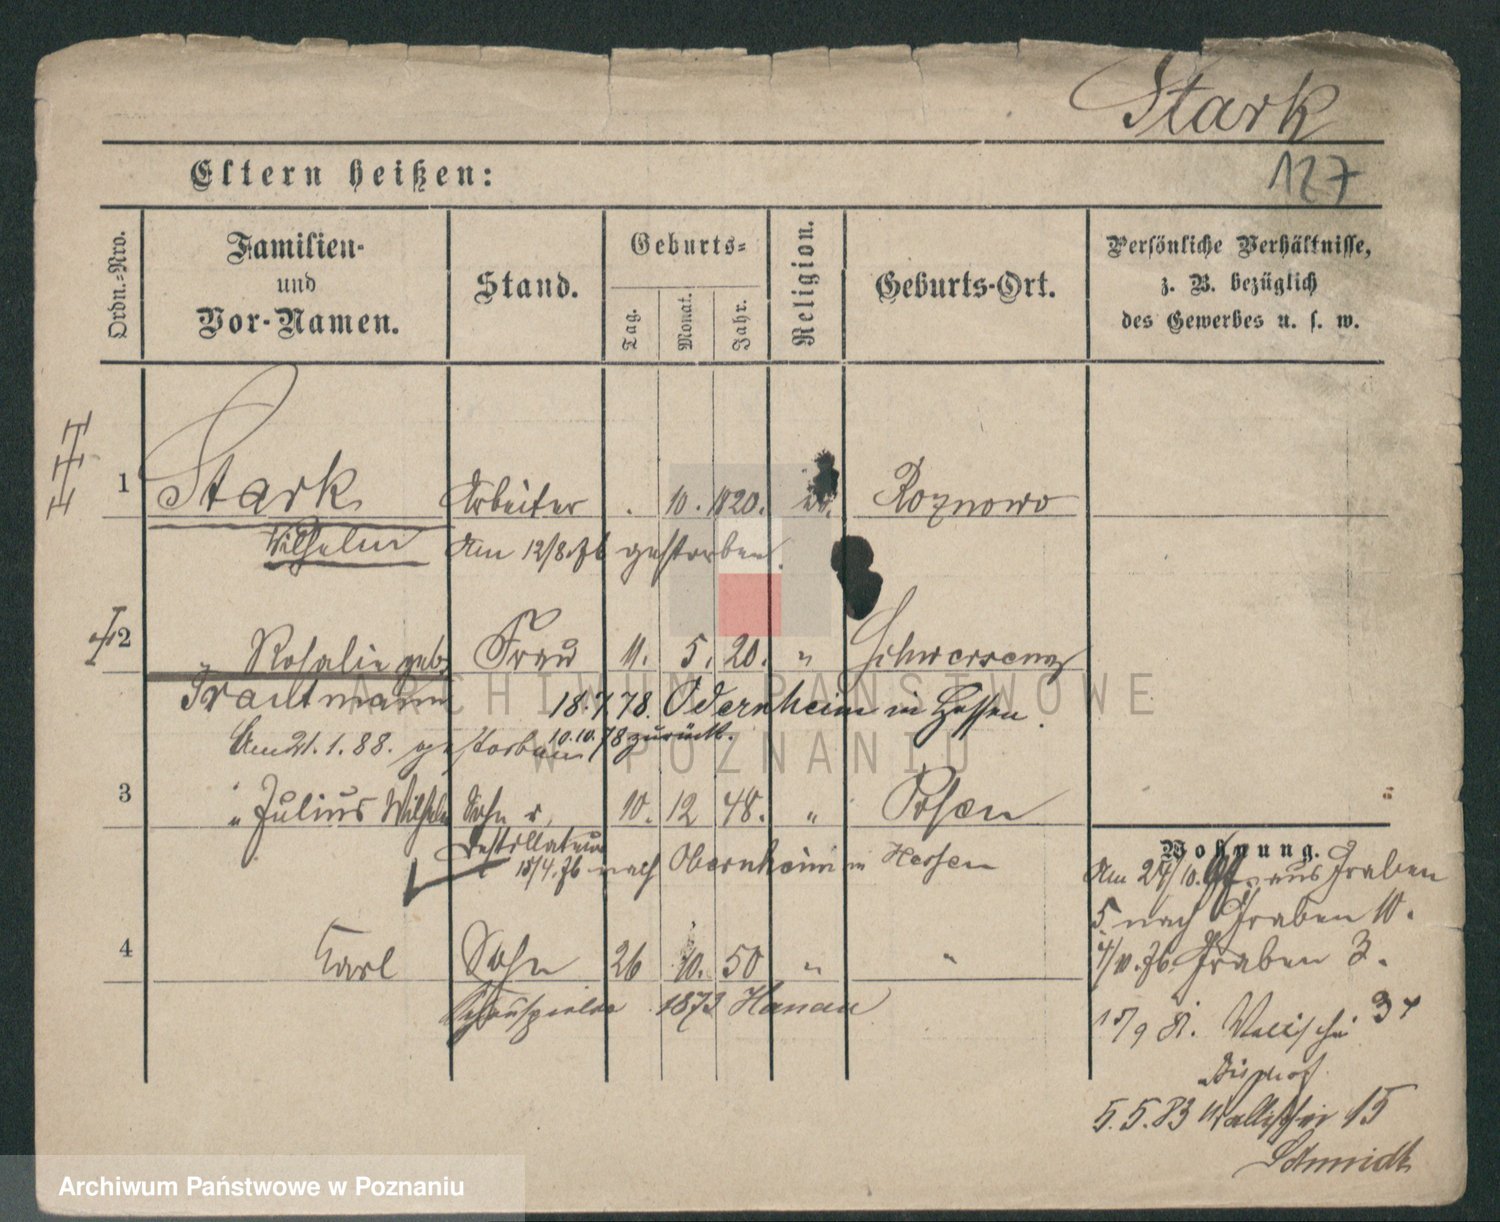 Stark
127
Eltern heißen:
Ordn.-Nro.
Familien-
und
Vor-Namen.
Stand.
Geburts-
Tag.
Monat.
Jahr.
Religion.
Geburts-Ort.
Persönliche Verhältnisse,
z. B. bezüglich
des Gewerbes u. s. w.
1 Stark Arbeiter . 10. 1820. Roznowo
Wilhelm Am 12/8.76 gestorben.
2 " Rosalie geb. Frau 11. 5. 20. " Schwersenz
Trautmann 18.7.78. Odernheim in Hessen.
Am 21.1.88. gestorben 10.10.78 zurück.
3 " Julius Wilhelm Sohn 10. 12 48. " Posen
Destillateur
15/4.76 nach Obernheim in Hessen
4 Karl Sohn 26 10. 50 " "
Schauspieler 1873 Hanau
Wohnung.
Am 24/10. aus Graben
5 nach Graben 10.
4/10.76. Graben 3.
15/9 81. Wallischei 37
Bischof
5.5.83 Wallischei 15
Schmidt
ARCHIWUM PAŃSTWOWE
W POZNANIU
Archiwum Państwowe w Poznaniu